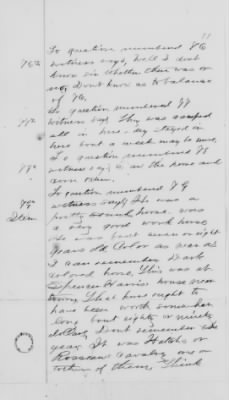 11
To question numbered 76
76th witness says, Well I dont
know sir whether there was or
not. Dont know as to balance
of 76.
To question numbered 77
77th witness says They was camped
all in here. they stayed in
here bout a week maybe be more.
To question numbered 78
78th witness says is on the home and
own other.
To question numbered 79
79th witness says He was a
Item pretty horse, was
a very good work horse
he was bout seven or eight
years old. Color as was as
I can remember Dark
colored horse. This was at
Spencer Harris house near
town, That horse ought to
have been worth somewhere
long bout eighty or ninety
dollars, Dont remember the
year, It was Hatchs or
Rosseaus Cavalry one or
tother of them, Think